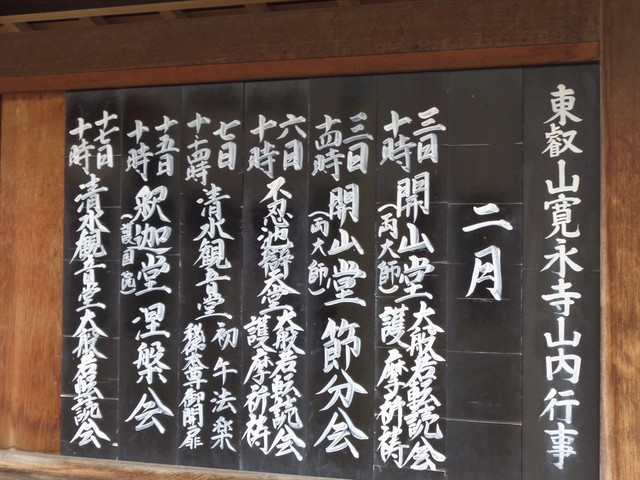 東叡山寛永寺山内行事
二月
三日
十時
開山堂
(両大師)
大般若転読会
護摩祈祷
三日
十四時
開山堂
(両大師)
節分会
六日
十時
不忍池辯天堂
大般若転読会
護摩祈祷
七日
十四時
清水観音堂
初午法楽
秘尊御開扉
十五日
十時
釈迦堂
(護国院)
涅槃会
十七日
十時
清水観音堂大般若転読会